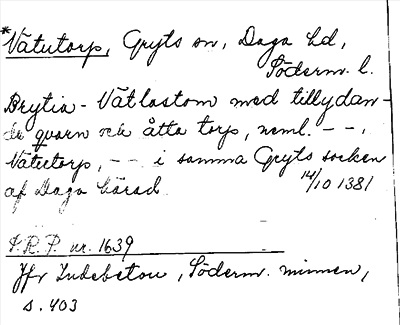 *Vätutorp, Gryts sn, Daga hd,
Söderm. l.
Brytia - Vätlostom med tillydan-
de qvarn och åtta torp, neml. - - ,
Vätutorp, - - i samma Gryts socken
af Daga härad. 14/10 1381
S.R.P. nr. 1639
Jfr Indebetou, Söderm. minnen,
s. 403